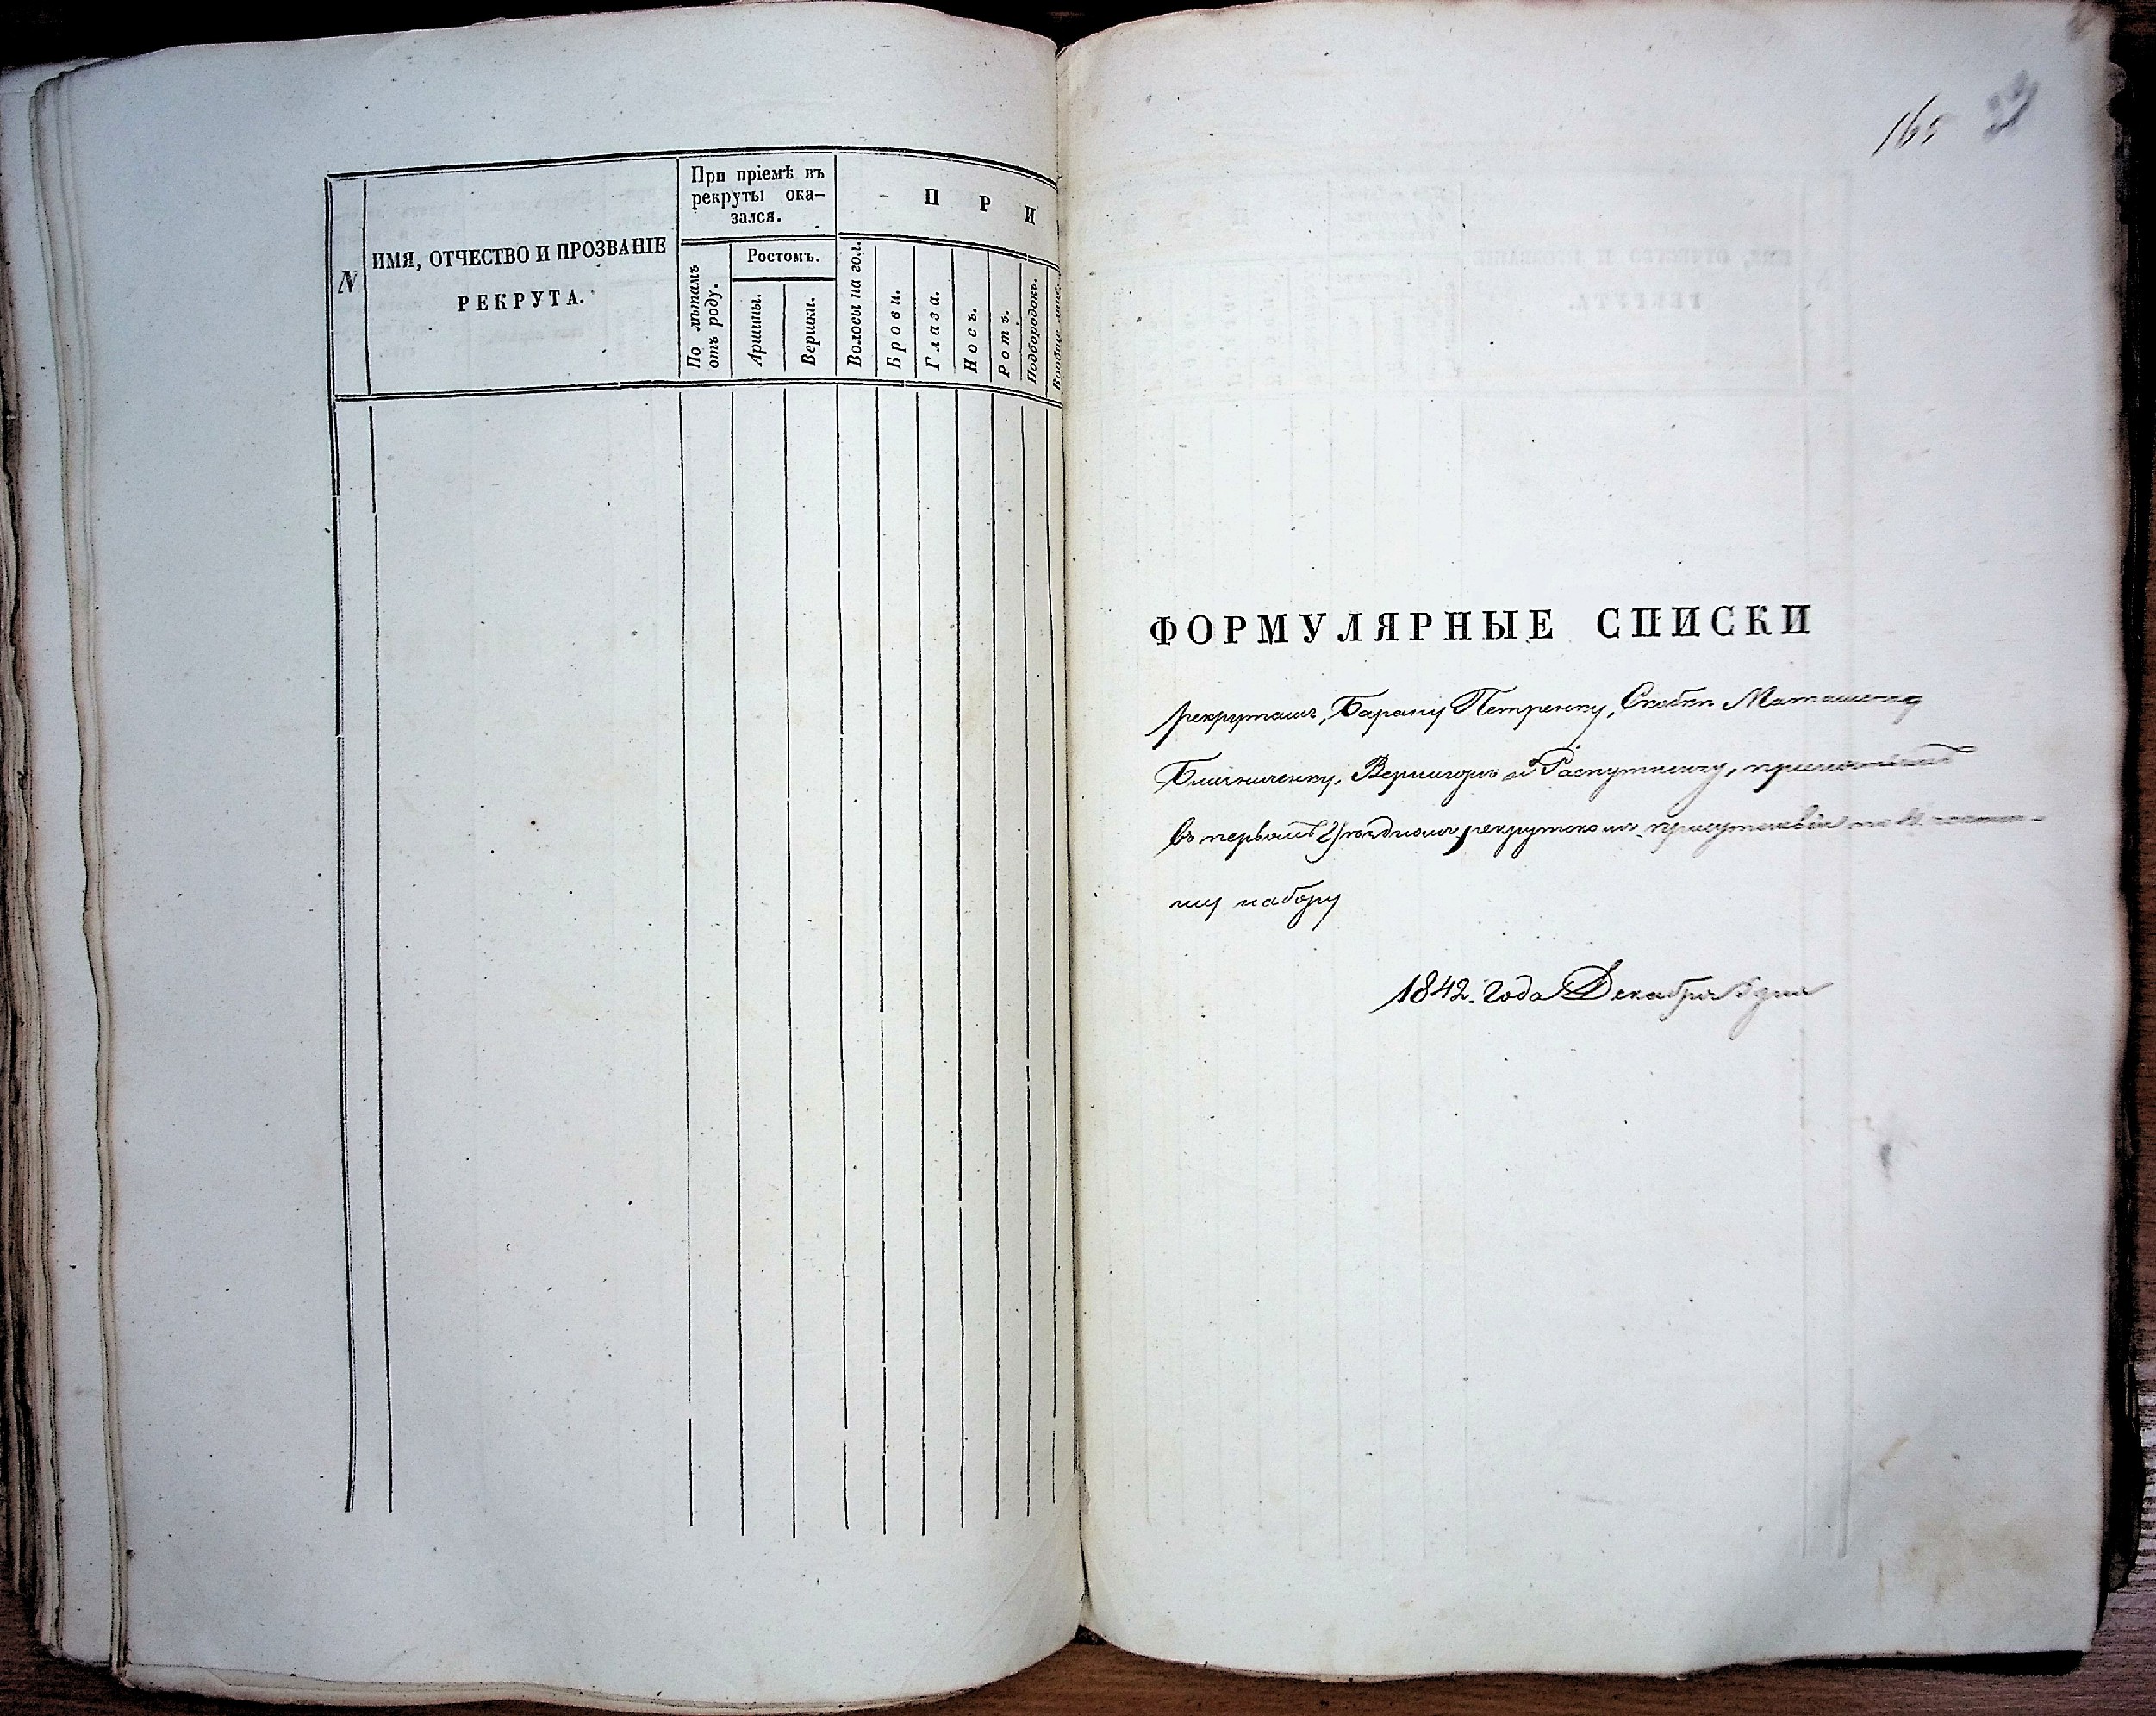 N
ИМЯ, ОТЧЕСТВО И ПРОЗВАНІЕ
РЕКРУТА.
При пріемѣ въ
рекруты ока-
зался.
По лѣтамъ
отъ роду.
Ростомъ.
Аршины.
Вершки.
П Р И
Волосы на гол.
Брови.
Глаза.
Носъ.
Ротъ.
Подбородокъ.
Вообще лице.
ФОРМУЛЯРНЫЕ СПИСКИ
рекрутамъ, Барану Петренку, Скобки
и Распутненку,
въ первомъ Уѣздномъ рекрутскомъ присутствіи
 му набору
1842. года Декабря дня